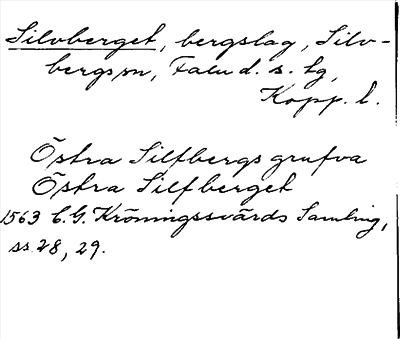 Silvberget, bergslag, Silv-
bergssn, Falu d. s. tg,
Kopp. l.
Östra Silfbergs grufva
Östra Silfberget
1563 C. G. Kröningssvärds Samling,
ss 28, 29.